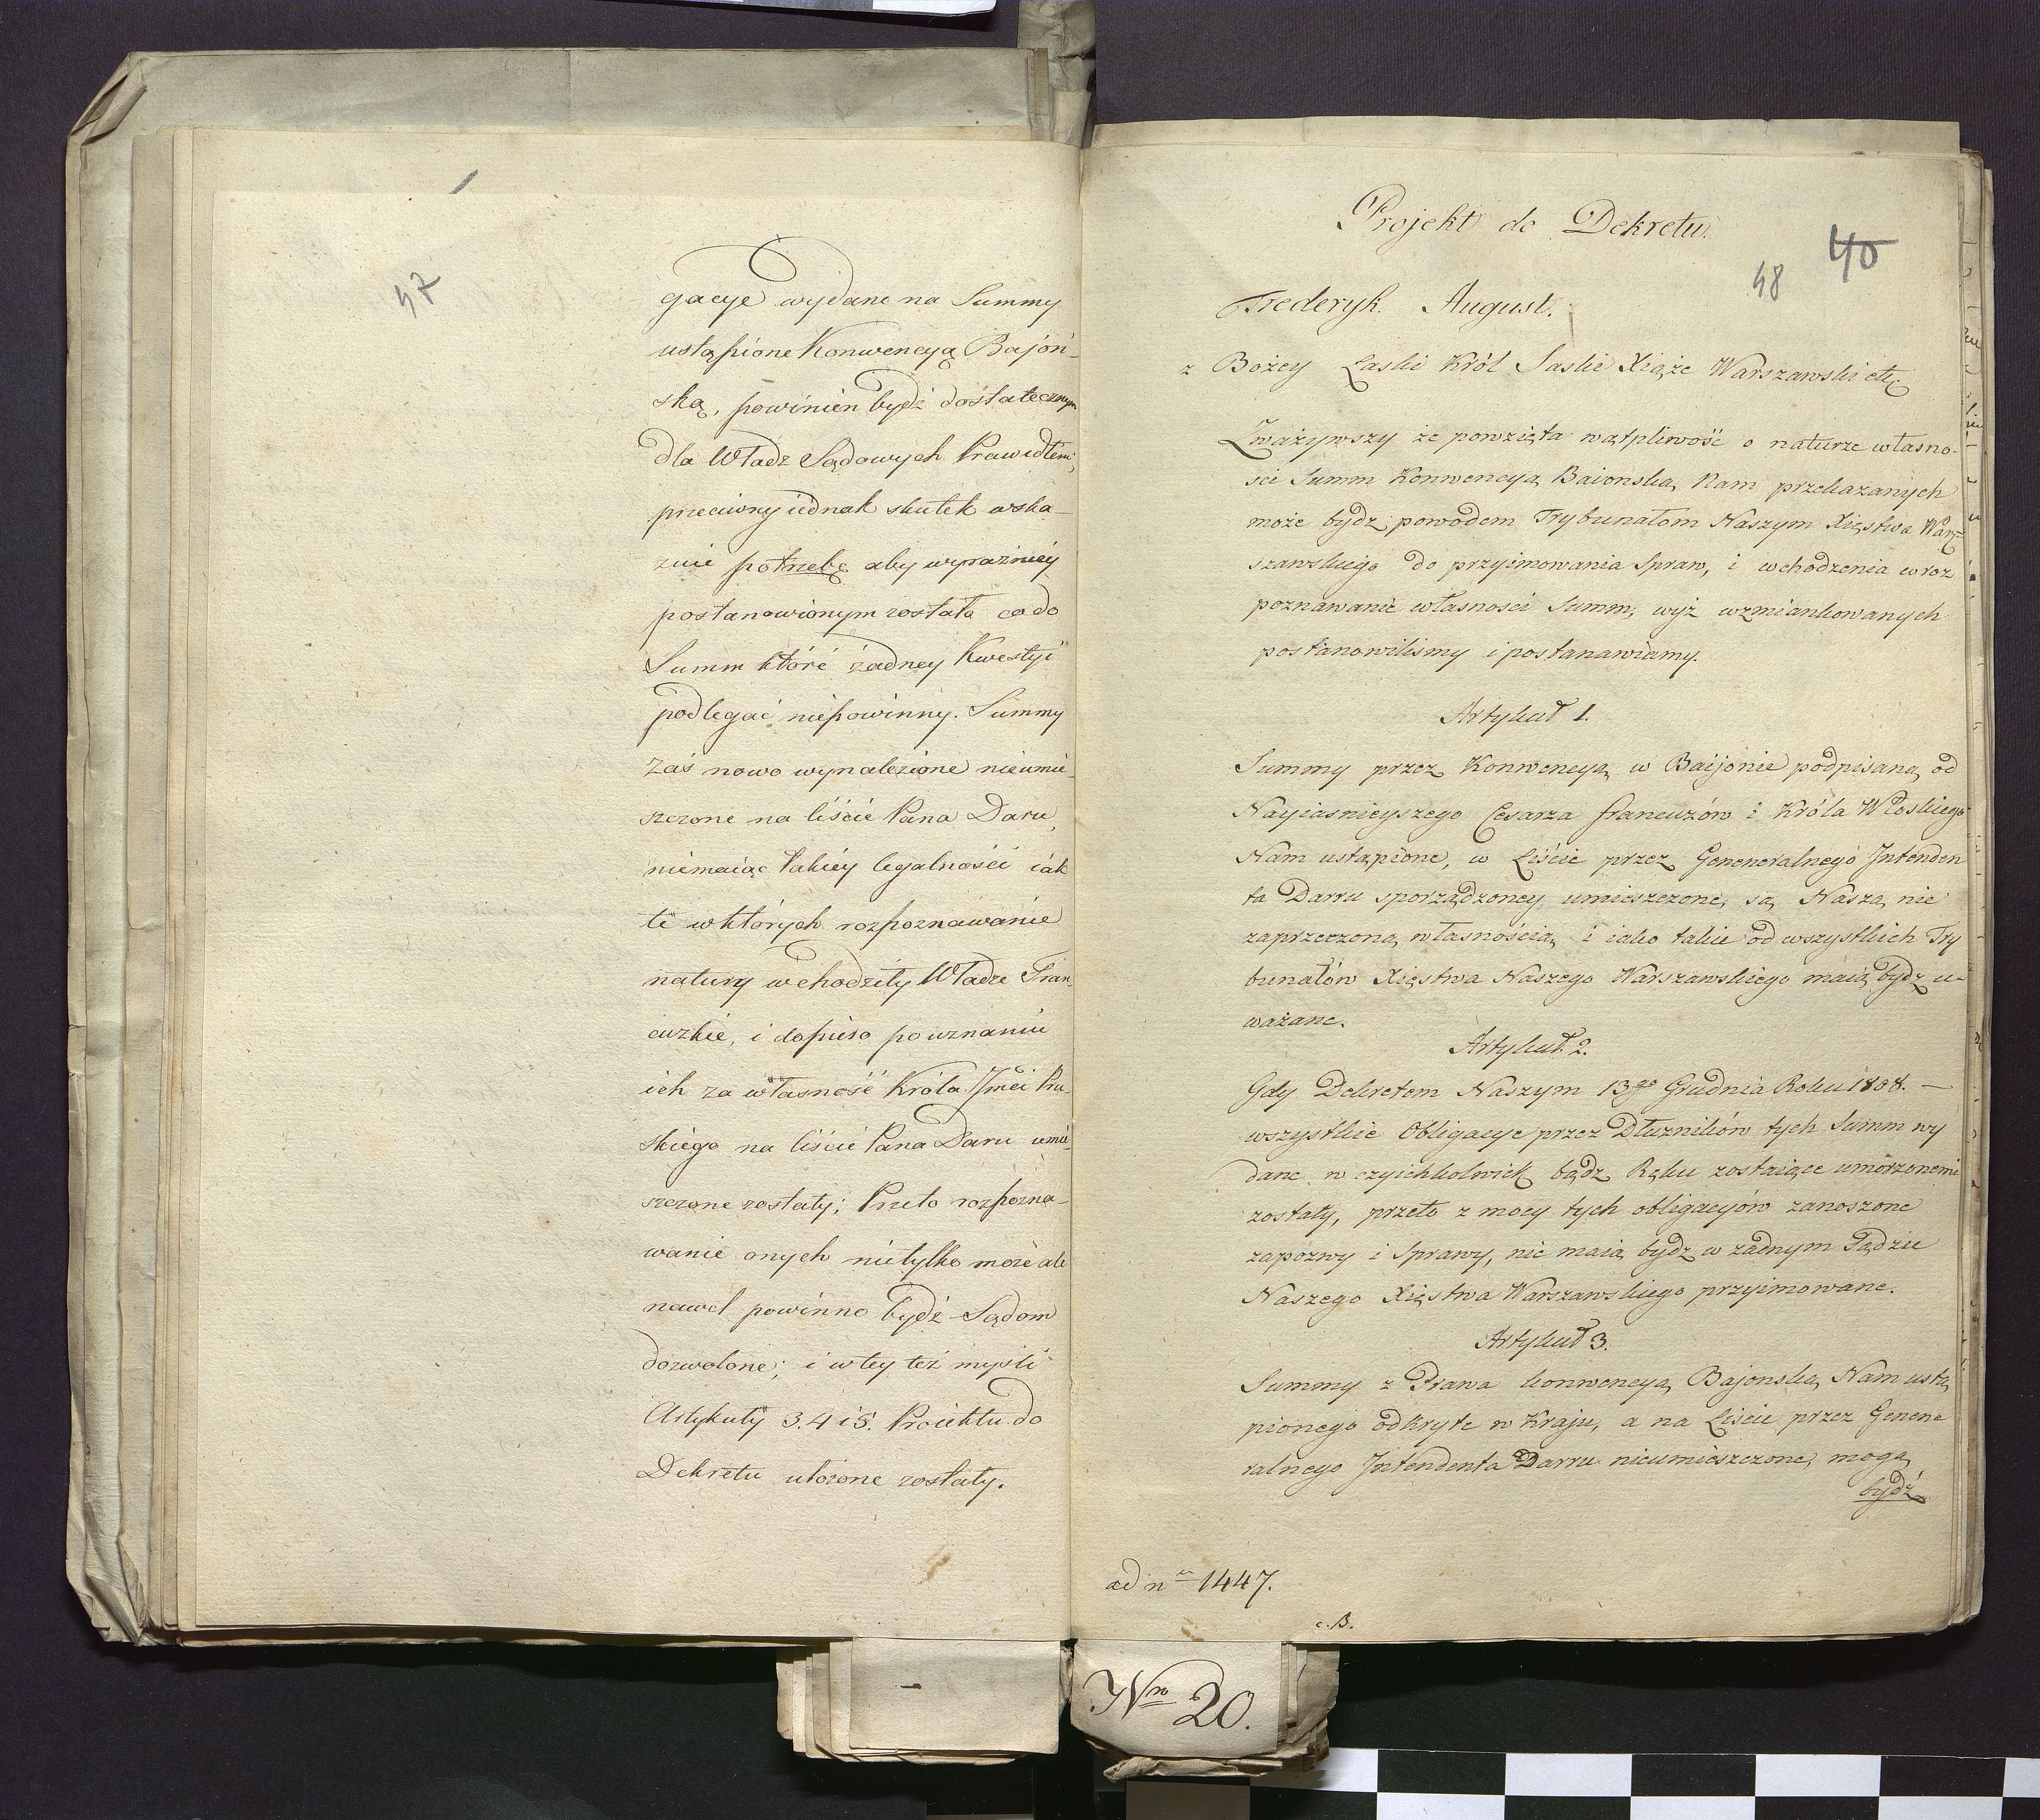 47
gacye wydane na Summy
ustąpione Konwencyą Bajoń-
ską, powinien bydź dostatecznym
dla Władz Sądowych Prawidłem,
przeciwny iednak skutek wska-
zuie potrzebę aby wyraźniey
postanowionym zostało co do
Summ któré żadney Kwestyi
podlegać niepowinny. Summy
zaś nowo wynalezione nieumie-
szczone na liście Pana Daru,
niemaiąc takiéy legalności iak
te w których rozpoznawanie
natury wchodziły Władze Fran-
cuzkie, i dopiero po uznaniu
ich za własność Króla Jmci Pru-
skiego na liście Pana Daru umie-
szczone zostały; Przeto rozpozna-
wanie onych nietylko może ale
nawet powinno bydź Sądom
dozwolone; i w tey też myśli
Artykuły 3. 4 i 5. Proiektu do
Dekretu ułożone zostały.
Projekt do Dekretu.
40
48
Frederyk August.
z Bożey Łaski Król Saski Xiąże Warszawski etc.
Zważywszy że powzięta wątpliwość o naturze własno-
ści Summ Konwencyą Baionską Nam przekazanych
może bydź powodem Trybunałom Naszym Xięstwa War-
szawskiego do przyimowania Spraw, i wchodzenia w roz
poznawanie własności Summ, wyż wzmiankowanych
postanowilismy i postanawiamy.
Artykuł 1.
Summy przez Konwencyą w Baijonie podpisaną od
Nayiasnieyszego Cesarza francuzów i Króla Włoskiego
Nam ustąpione, w Liście przez Geneneralnego Intenden
ta Darru sporządzoney umieszczone, są Naszą nie
zaprzeczoną własnością, i iako takie od wszystkich Try
bunałów Xięstwa Naszego Warszawskiego maią bydź u-
ważane.
Artykuł 2.
Gdy Dekretem Naszym 13go Grudnia Roku 1808. —
wszystkie Obligacye przez Dłużników tych Summ wy
dane w czyichkolwiek bądź Ręku zostaiące umorzonemi
zostały, przeto z mocy tych obligacyów zanoszone
zapozwy i Sprawy, nie maią bydź w żadnym Sądzie
Naszego Xięstwa Warszawskiego przyimowane.
Artykuł 3.
Summy z Prawa konwencyą Bajonską Nam ustą
pionego odkryte w Kraju, a na Liście przez Genene
ralnego Intendenta Darru nieumieszczone, mogą
bydź
ad nu 1447.
c. B.
Nro 20.